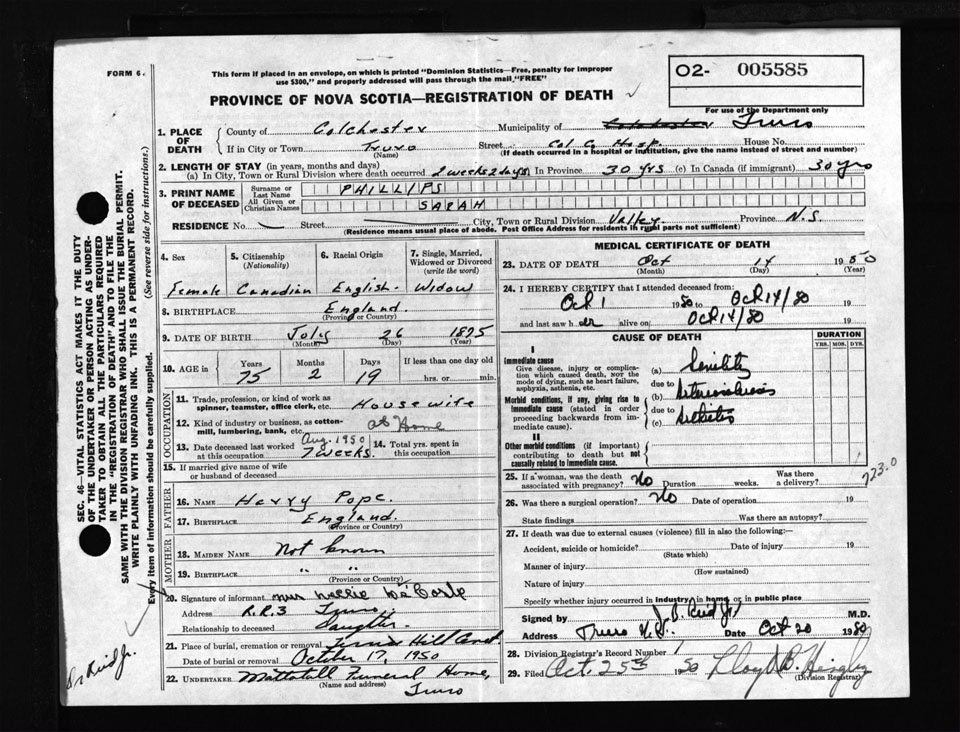 FORM 6.
This form if placed in an envelope, on which is printed "Dominion Statistics—Free, penalty for improper
use $300," and properly addressed will pass through the mail, "FREE"
O2- 005585
PROVINCE OF NOVA SCOTIA—REGISTRATION OF DEATH
For use of the Department only
1. PLACE OF DEATH
County of Colchester Municipality of Colchester Truro
If in City or Town Truro Street Col Co Hosp. House No.
(Name) (If death occurred in a hospital or institution, give the name instead of street and number)
2. LENGTH OF STAY (in years, months and days)
(a) In City, Town or Rural Division where death occurred 2 weeks 2 days In Province 30 yrs (c) In Canada (if immigrant) 30 yrs
3. PRINT NAME OF DECEASED
Surname or Last Name PHILLIPS
All Given or Christian Names SARAH
RESIDENCE No. Street City, Town or Rural Division Valley Province N.S.
(Residence means usual place of abode. Post Office Address for residents in rural parts not sufficient)
4. Sex 5. Citizenship (Nationality) 6. Racial Origin 7. Single, Married, Widowed or Divorced (write the word)
Female Canadian English Widow
8. BIRTHPLACE England
(Province or Country)
9. DATE OF BIRTH July 26 1875
(Month) (Day) (Year)
10. AGE in Years Months Days If less than one day old
75 2 19 hrs. or min.
OCCUPATION
11. Trade, profession, or kind of work as
spinner, teamster, office clerk, etc. Housewife
12. Kind of industry or business, as cotton-
mill, lumbering, bank, etc. at Home
13. Date deceased last worked at this occupation Aug. 1950 7 weeks. 14. Total yrs. spent in this occupation
15. If married give name of wife
or husband of deceased
FATHER
16. NAME Harry Pope.
17. BIRTHPLACE England.
(Province or Country)
MOTHER
18. MAIDEN NAME Not known
19. BIRTHPLACE " "
(Province or Country)
20. Signature of informant Mrs
Address R.R.3 Truro
Relationship to deceased Daughter.
21. Place of burial, cremation or removal Hill
Date of burial or removal October 17, 1950
22. UNDERTAKER Mattatall Funeral Home,
(Name and address) Truro
MEDICAL CERTIFICATE OF DEATH
23. DATE OF DEATH Oct 14 1950
(Month) (Day) (Year)
24. I HEREBY CERTIFY that I attended deceased from:
Oct 1 50 to Oct 14/50 19
and last saw her alive on Oct 14/50 19
CAUSE OF DEATH
DURATION
YRS. MOS. DYS.
I
Immediate cause
Give disease, injury or complication which caused death, NOT the mode of dying, such as heart failure, asphyxia, asthenia, etc.
(a) Senility
due to
Morbid conditions, if any, giving rise to immediate cause (stated in order proceeding backwards from immediate cause).
(b) Arteriosclerosis
due to
(c) Arthritis
II
Other morbid conditions (if important) contributing to death but not causally related to immediate cause.
723.0
25. If a woman, was the death associated with pregnancy? No Duration weeks. Was there a delivery?
26. Was there a surgical operation? No Date of operation 19
State findings Was there an autopsy?
27. If death was due to external causes (violence) fill in also the following:—
Accident, suicide or homicide? Date of injury 19
(State which)
Manner of injury
(How sustained)
Nature of injury
Specify whether injury occurred in industry, in home or in public place
Signed by J. B. Reid Jr M.D.
Address Truro N.S. Date Oct 20 1950
28. Division Registrar's Record Number
29. Filed Oct. 25th 50 Lloyd B.
(Division Registrar)
SEC. 46—VITAL STATISTICS ACT MAKES IT THE DUTY
OF THE UNDERTAKER OR PERSON ACTING AS UNDER-
TAKER TO OBTAIN ALL THE PARTICULARS REQUIRED
IN THE "REGISTRATION OF DEATH" AND TO FILE THE
SAME WITH THE DIVISION REGISTRAR WHO SHALL ISSUE THE BURIAL PERMIT.
WRITE PLAINLY WITH UNFADING INK. THIS IS A PERMANENT RECORD.
Every item of information should be carefully supplied. (See reverse side for instructions.)
Dr Reid Jr.